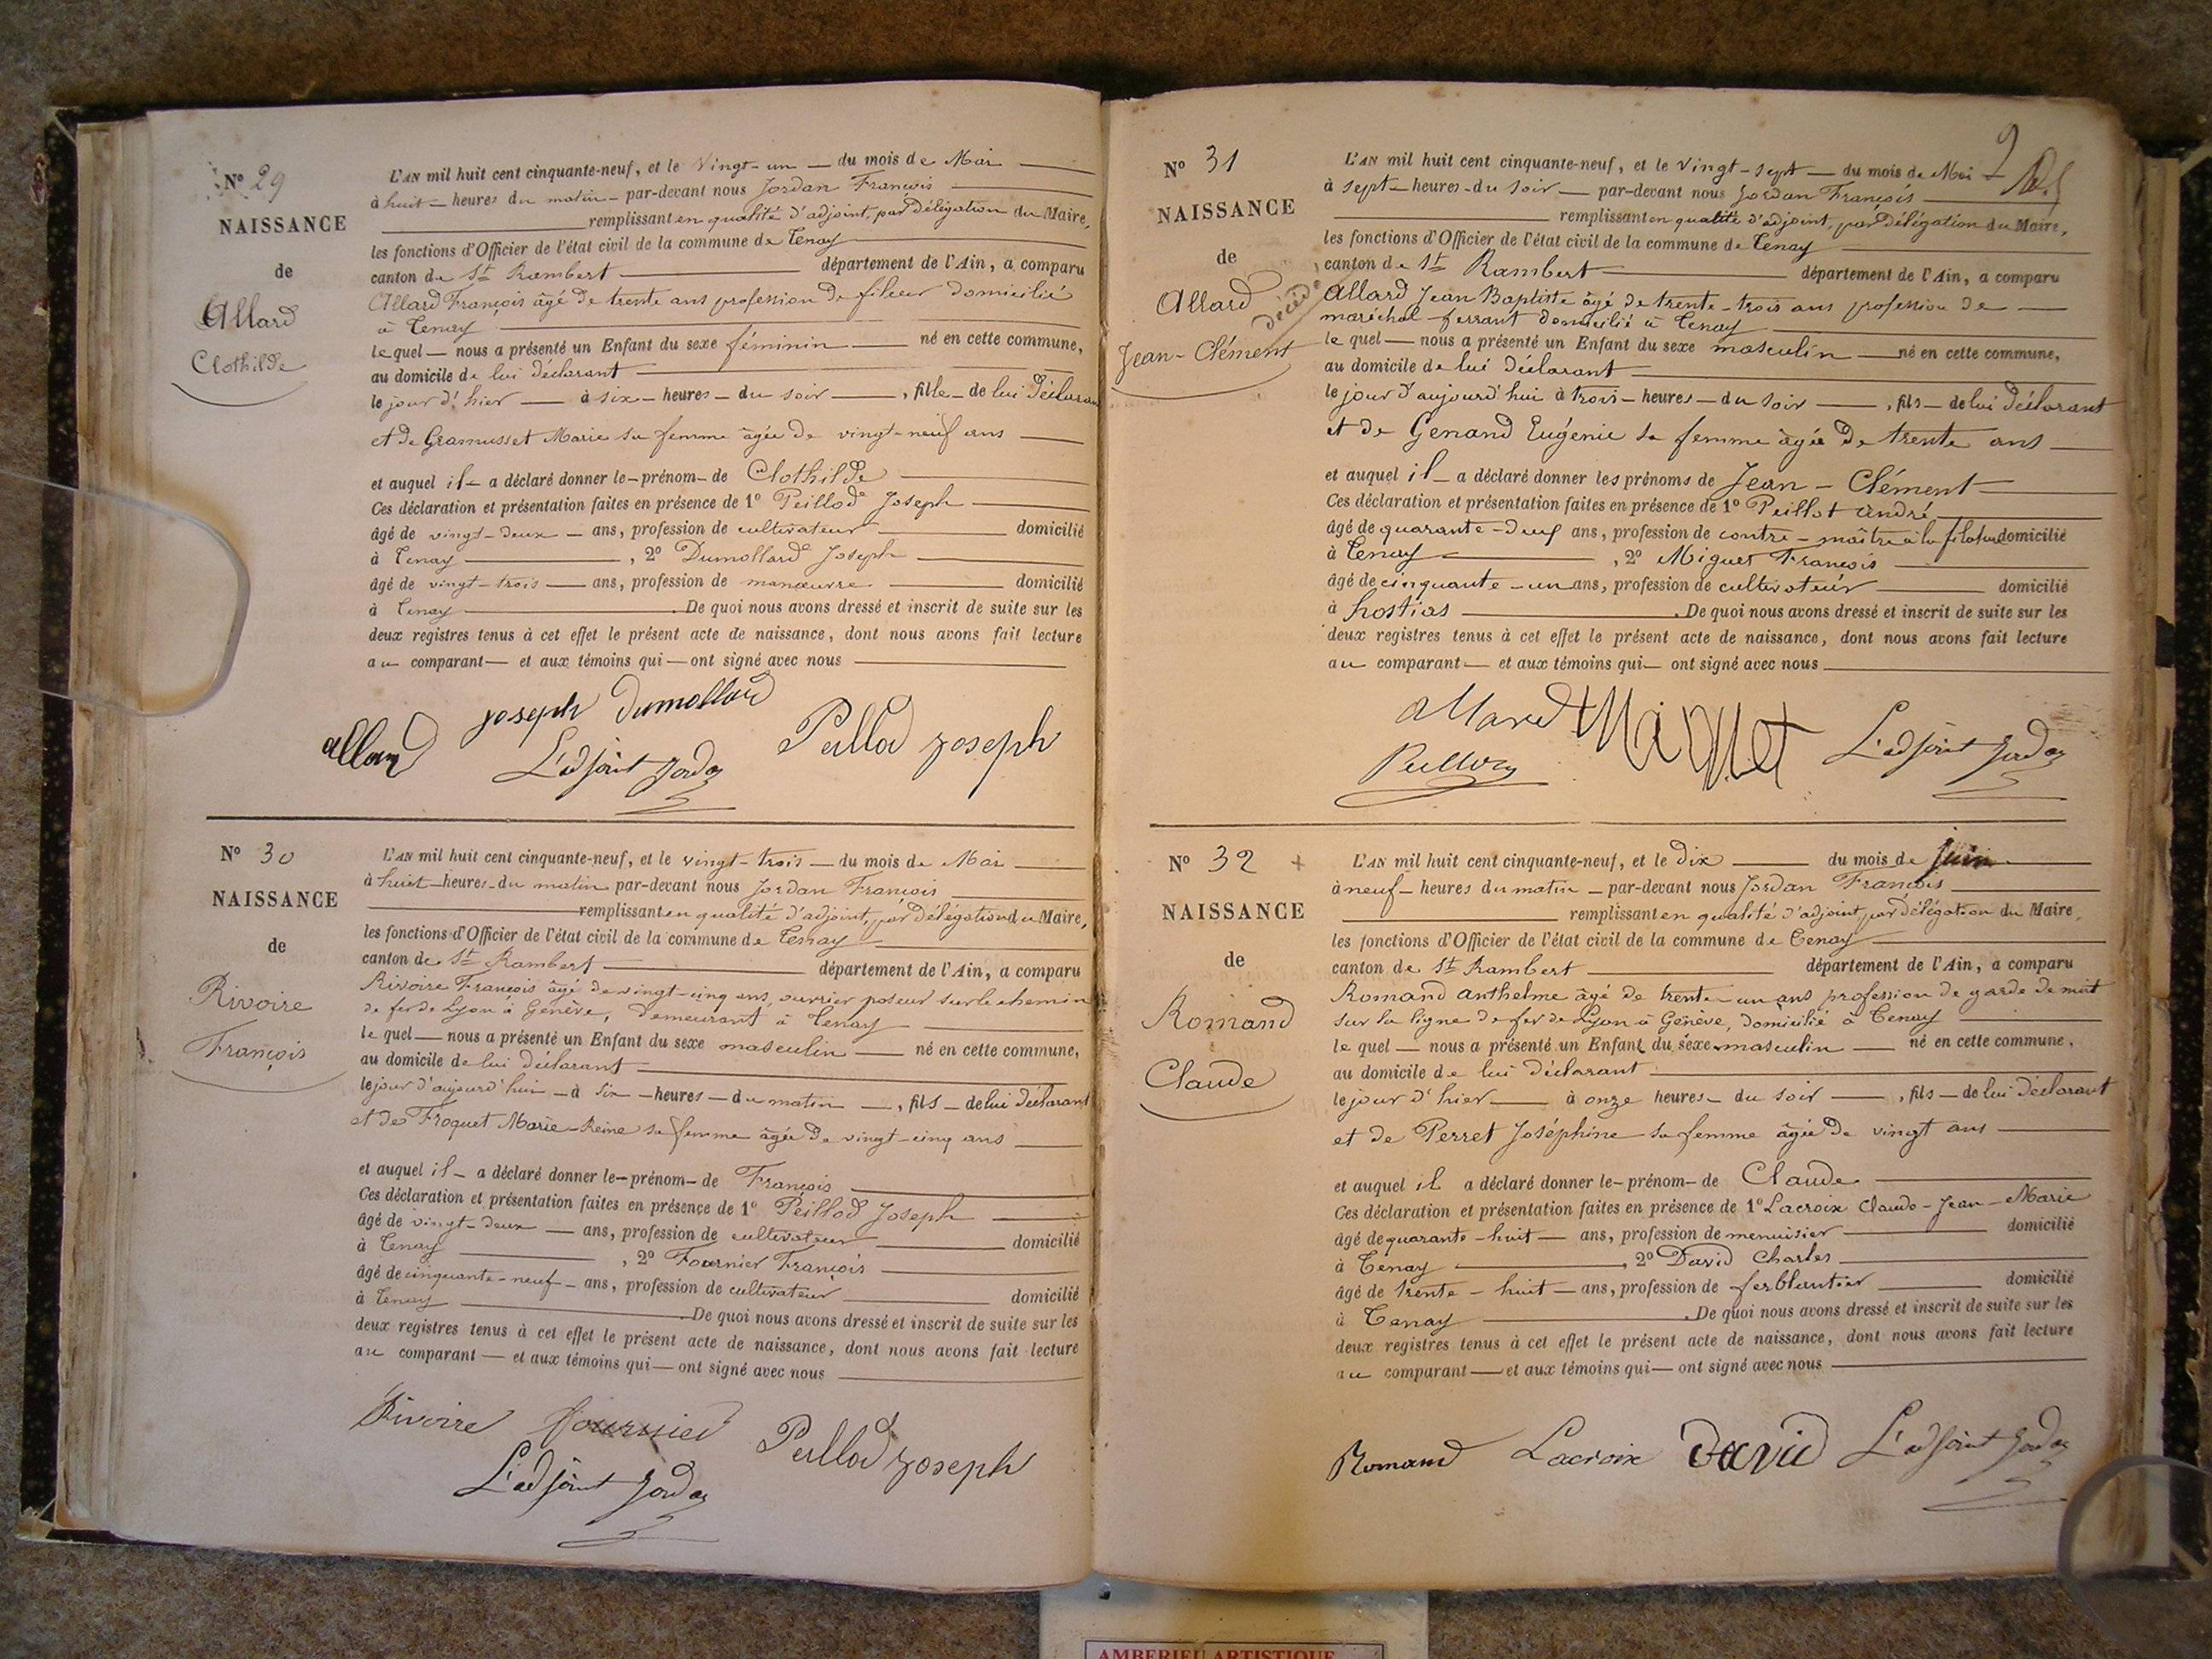 N° 29
NAISSANCE
de
Allard
Clothilde
L'AN mil huit cent cinquante-neuf, et le Vingt-un — du mois de Mai
à huit — heures du matin — par-devant nous Jordan François
remplissant en qualité d'adjoint, par délégation du Maire,
les fonctions d'Officier de l'état civil de la commune de Tenay
canton de St Rambert département de l'Ain, a comparu
Allard François âgé de trente ans profession de fileur domicilié
à Tenay
lequel — nous a présenté un Enfant du sexe féminin — né en cette commune,
au domicile de lui déclarant
le jour d'hier — à six — heures — du soir — , fille — de lui déclarant
et de Gramusset Marie sa femme âgée de vingt-neuf ans
et auquel il — a déclaré donner le — prénom — de Clothilde
Ces déclaration et présentation faites en présence de 1° Peillod Joseph
âgé de vingt-deux — ans, profession de cultivateur domicilié
à Tenay , 2° Dumollard Joseph
âgé de vingt-trois — ans, profession de manœuvre domicilié
à Tenay . De quoi nous avons dressé et inscrit de suite sur les
deux registres tenus à cet effet le présent acte de naissance, dont nous avons fait lecture
au comparant — et aux témoins qui — ont signé avec nous
joseph Dumollard
allard L'adjoint Jordan Peillod joseph
N° 30
NAISSANCE
de
Rivoire
François
L'AN mil huit cent cinquante-neuf, et le vingt-trois — du mois de Mai
à huit — heures — du matin par-devant nous Jordan François
remplissant en qualité d'adjoint, par délégation du Maire,
les fonctions d'Officier de l'état civil de la commune de Tenay
canton de St Rambert département de l'Ain, a comparu
Rivoire François âgé de vingt-cinq ans, ouvrier poseur sur le chemin
de fer de Lyon à Genève, demeurant à Tenay
lequel — nous a présenté un Enfant du sexe masculin — né en cette commune,
au domicile de lui déclarant
le jour d'aujourd'hui — à six — heures — du matin — , fils — de lui déclarant
et de Froquet Marie-Reine sa femme âgée de vingt-cinq ans
et auquel il — a déclaré donner le — prénom — de François
Ces déclaration et présentation faites en présence de 1° Peillod Joseph
âgé de vingt-deux — ans, profession de cultivateur domicilié
à Tenay , 2° Fournier François
âgé de cinquante-neuf — ans, profession de cultivateur domicilié
à Tenay . De quoi nous avons dressé et inscrit de suite sur les
deux registres tenus à cet effet le présent acte de naissance, dont nous avons fait lecture
au comparant — et aux témoins qui — ont signé avec nous
Rivoire fournier Peillod joseph
L'adjoint Jordan
N° 31
NAISSANCE
de
Allard
décédé
Jean-Clément
L'AN mil huit cent cinquante-neuf, et le vingt-sept — du mois de Mai
à sept — heures — du soir — par-devant nous Jordan François
remplissant en qualité d'adjoint, par délégation du Maire,
les fonctions d'Officier de l'état civil de la commune de Tenay
canton de St Rambert département de l'Ain, a comparu
Allard Jean Baptiste âgé de trente-trois ans profession de
maréchal-ferrant domicilié à Tenay
lequel — nous a présenté un Enfant du sexe masculin — né en cette commune,
au domicile de lui déclarant
le jour d'aujourd'hui à trois — heures — du soir — , fils — de lui déclarant
et de Genand Eugénie sa femme âgée de trente ans
et auquel il — a déclaré donner les prénoms de Jean-Clément
Ces déclaration et présentation faites en présence de 1° Peillot André
âgé de quarante-deux ans, profession de contre-maître à la filature domicilié
à Tenay , 2° Miguet François
âgé de cinquante-un ans, profession de cultivateur domicilié
à hostias . De quoi nous avons dressé et inscrit de suite sur les
deux registres tenus à cet effet le présent acte de naissance, dont nous avons fait lecture
au comparant — et aux témoins qui — ont signé avec nous
allard Miguet L'adjoint Jordan
N° 32 +
NAISSANCE
de
Romand
Claude
L'AN mil huit cent cinquante-neuf, et le dix du mois de juin
à neuf — heures du matin — par-devant nous Jordan François
remplissant en qualité d'adjoint, par délégation du Maire,
les fonctions d'Officier de l'état civil de la commune de Tenay
canton de St Rambert département de l'Ain, a comparu
Romand Anthelme âgé de trente-un ans profession de garde de nuit
sur la ligne de fer de Lyon à Genève, domicilié à Tenay
lequel — nous a présenté un Enfant du sexe masculin — né en cette commune,
au domicile de lui déclarant
le jour d'hier — à onze heures — du soir — , fils — de lui déclarant
et de Perret Joséphine sa femme âgée de vingt ans
et auquel il a déclaré donner le — prénom — de Claude
Ces déclaration et présentation faites en présence de 1° Lacroix Claude-Jean-Marie
âgé de quarante-huit — ans, profession de menuisier domicilié
à Tenay , 2° David Charles
âgé de trente-huit — ans, profession de ferblantier domicilié
à Tenay . De quoi nous avons dressé et inscrit de suite sur les
deux registres tenus à cet effet le présent acte de naissance, dont nous avons fait lecture
au comparant — et aux témoins qui — ont signé avec nous
Romand Lacroix David L'adjoint Jordan
AMBERIEU ARTISTIQUE